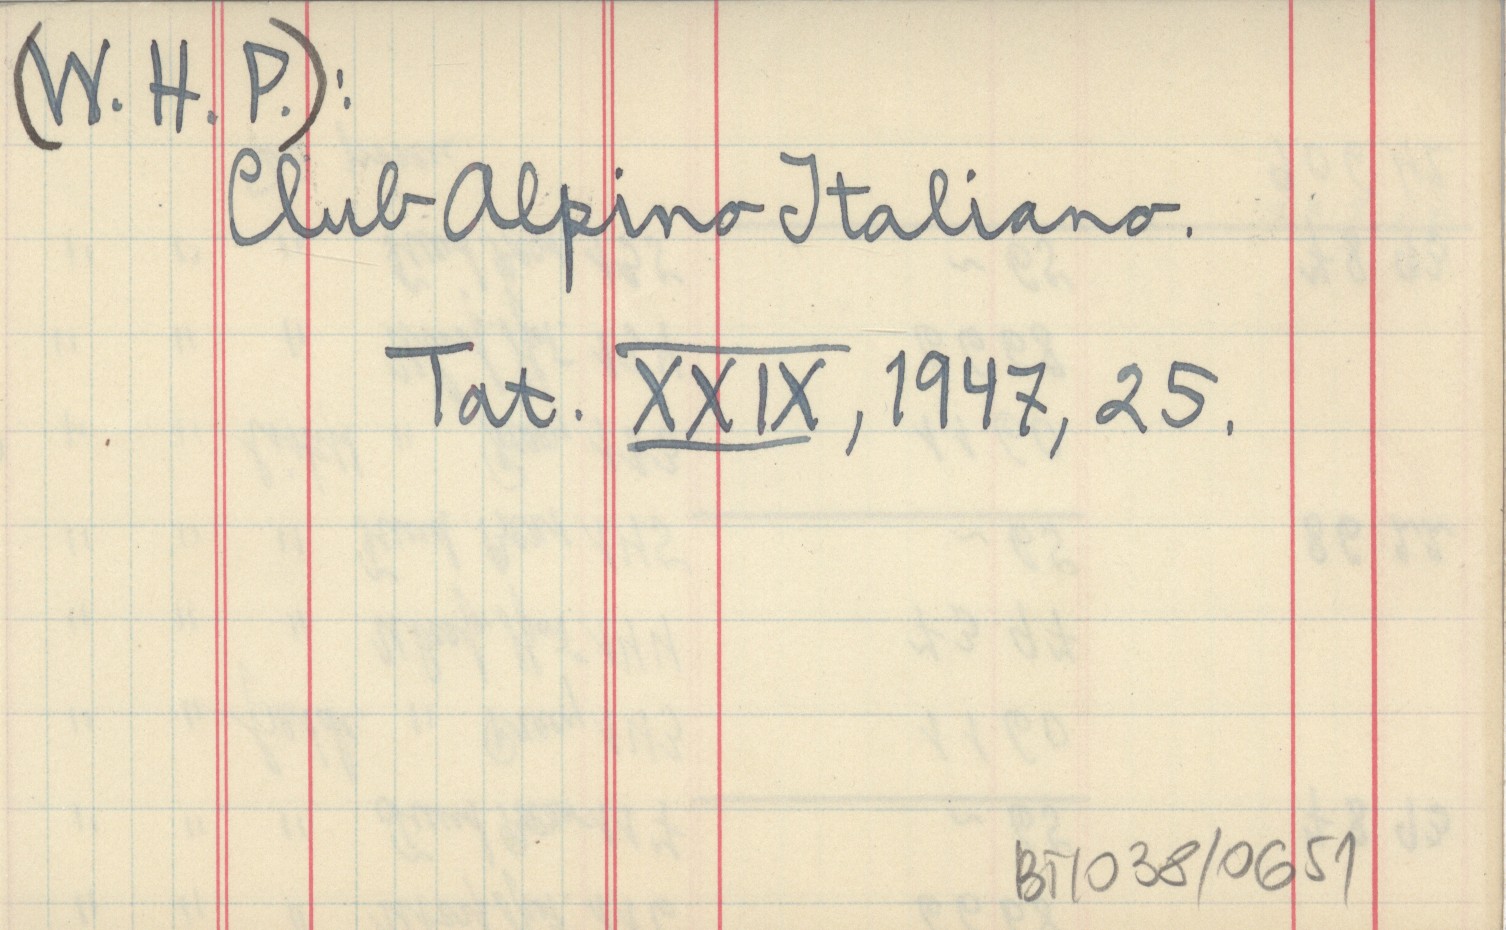 (W. H. P.):
Club Alpino Italiano.
Tat. XXIX, 1947, 25.
BT/038/0651